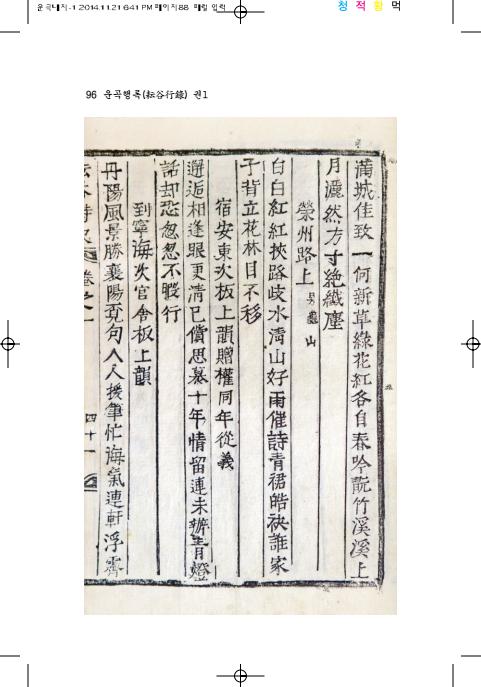 운곡내지-1 2014.11.21 6:41 PM 페이지88 매킬 입력
청 적 황 먹
96 운곡행록(耘谷行錄) 권1
滿城佳致一何新草綠花紅各自春吟翫竹溪溪上
月灑然方寸絶纖塵
榮州路上 号龜山
白白紅紅挾路歧水淸山好雨催詩靑裙皓袂誰家
子背立花林目不移
宿安東次板上韻贈權同年從義
邂逅相逢眼更淸已償思慕十年情留連未辦靑燈
話却恐怱怱不暇行
到寧海次官舍板上韻
丹陽風景勝襄陽覓句人人援筆忙海氣連軒浮霽
卷之一 四十一